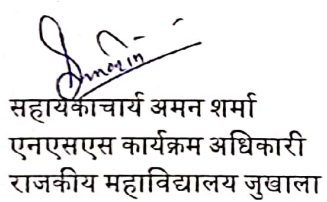 सहायकाचार्य अमन शर्मा
एनएसएस कार्यक्रम अधिकारी
राजकीय महाविद्यालय जुखाला